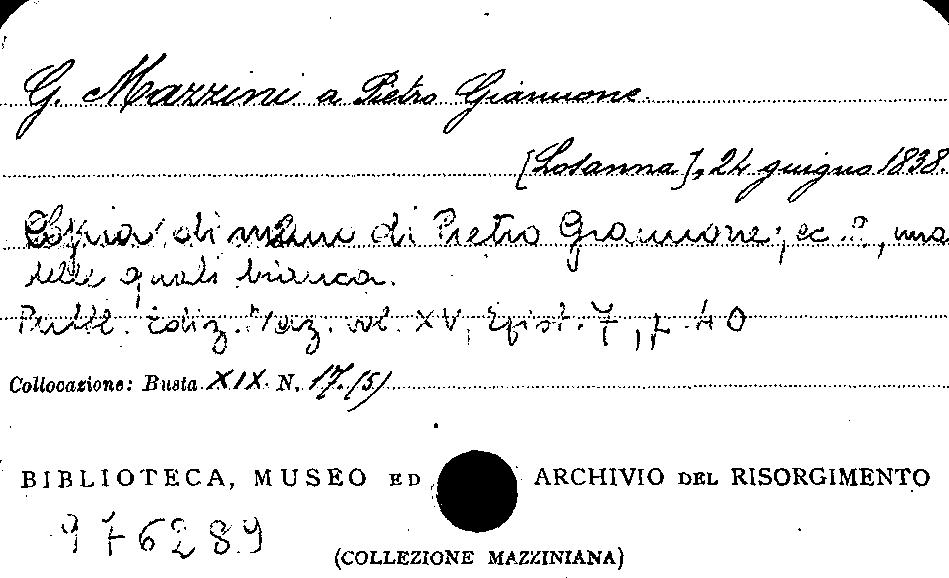 G. Mazzini a Pietro Giannone.
[Losanna], 24 giugno 1838.
Copia di mano di Pietro Giannone; cc. 2, una
delle quali bianca.
Pubbl. Ediz. Naz. vol. XV, Epist. 7, p. 40
Collocazione: Busta XIX. N. 17.(5)
BIBLIOTECA, MUSEO ED ARCHIVIO DEL RISORGIMENTO
976289
(COLLEZIONE MAZZINIANA)